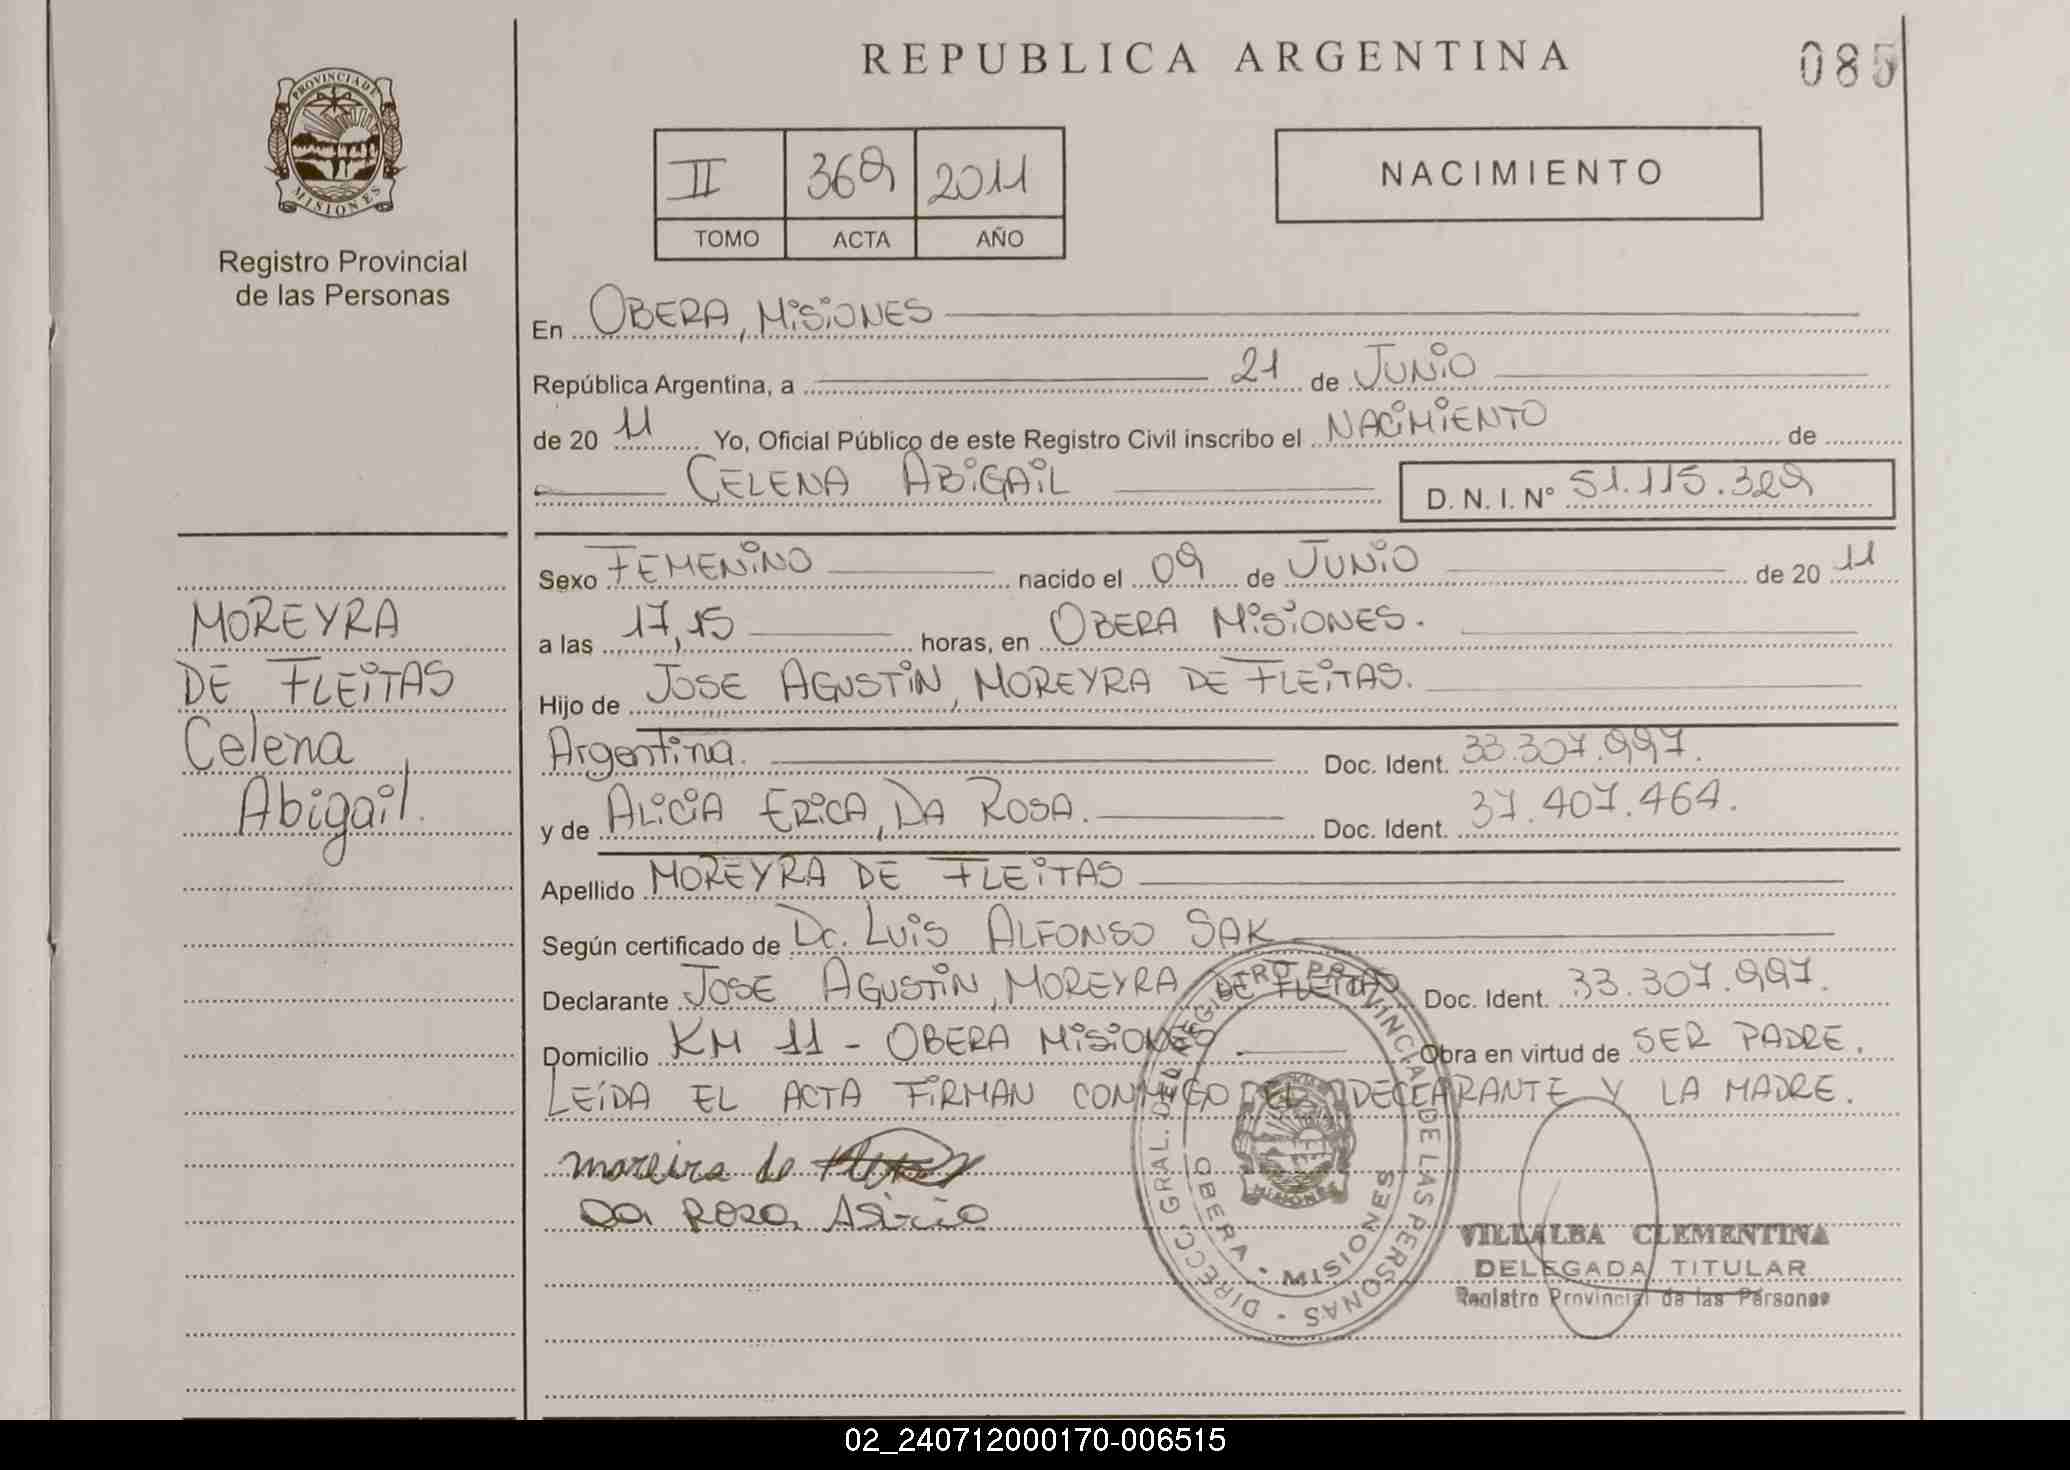 REPUBLICA ARGENTINA
085
PROVINCIA DE MISIONES
Registro Provincial
de las Personas
II 369 2011
TOMO ACTA AÑO
NACIMIENTO
En OBERA, MISIONES
República Argentina, a 21 de JUNIO
de 20 11 Yo, Oficial Público de este Registro Civil inscribo el NACIMIENTO de
CELENA ABIGAIL D. N. I. N° 51.115.329
Sexo FEMENINO nacido el 09 de JUNIO de 20 11
a las 17,15 horas, en OBERA MISIONES.
Hijo de JOSE AGUSTIN, MOREYRA DE FLEITAS.
Argentina. Doc. Ident. 33.307.997.
y de ALICIA ERICA, DA ROSA. Doc. Ident. 37.407.464.
Apellido MOREYRA DE FLEITAS
Según certificado de Dc. LUIS ALFONSO SAK
Declarante JOSE AGUSTIN, MOREYRA DE FLEITAS Doc. Ident. 33.307.997.
Domicilio KM 11 - OBERA MISIONES Obra en virtud de SER PADRE.
LEIDA EL ACTA FIRMAN CONMIGO EL DECLARANTE Y LA MADRE.
MOREYRA
DE FLEITAS
Celena
Abigail.
moreira de
DIRECC. GRAL. DEL REGISTRO PROVINCIAL DE LAS PERSONAS
OBERA - MISIONES
MISIONES
VILLALBA CLEMENTINA
DELEGADA TITULAR
Registro Provincial de las Personas
02_240712000170-006515